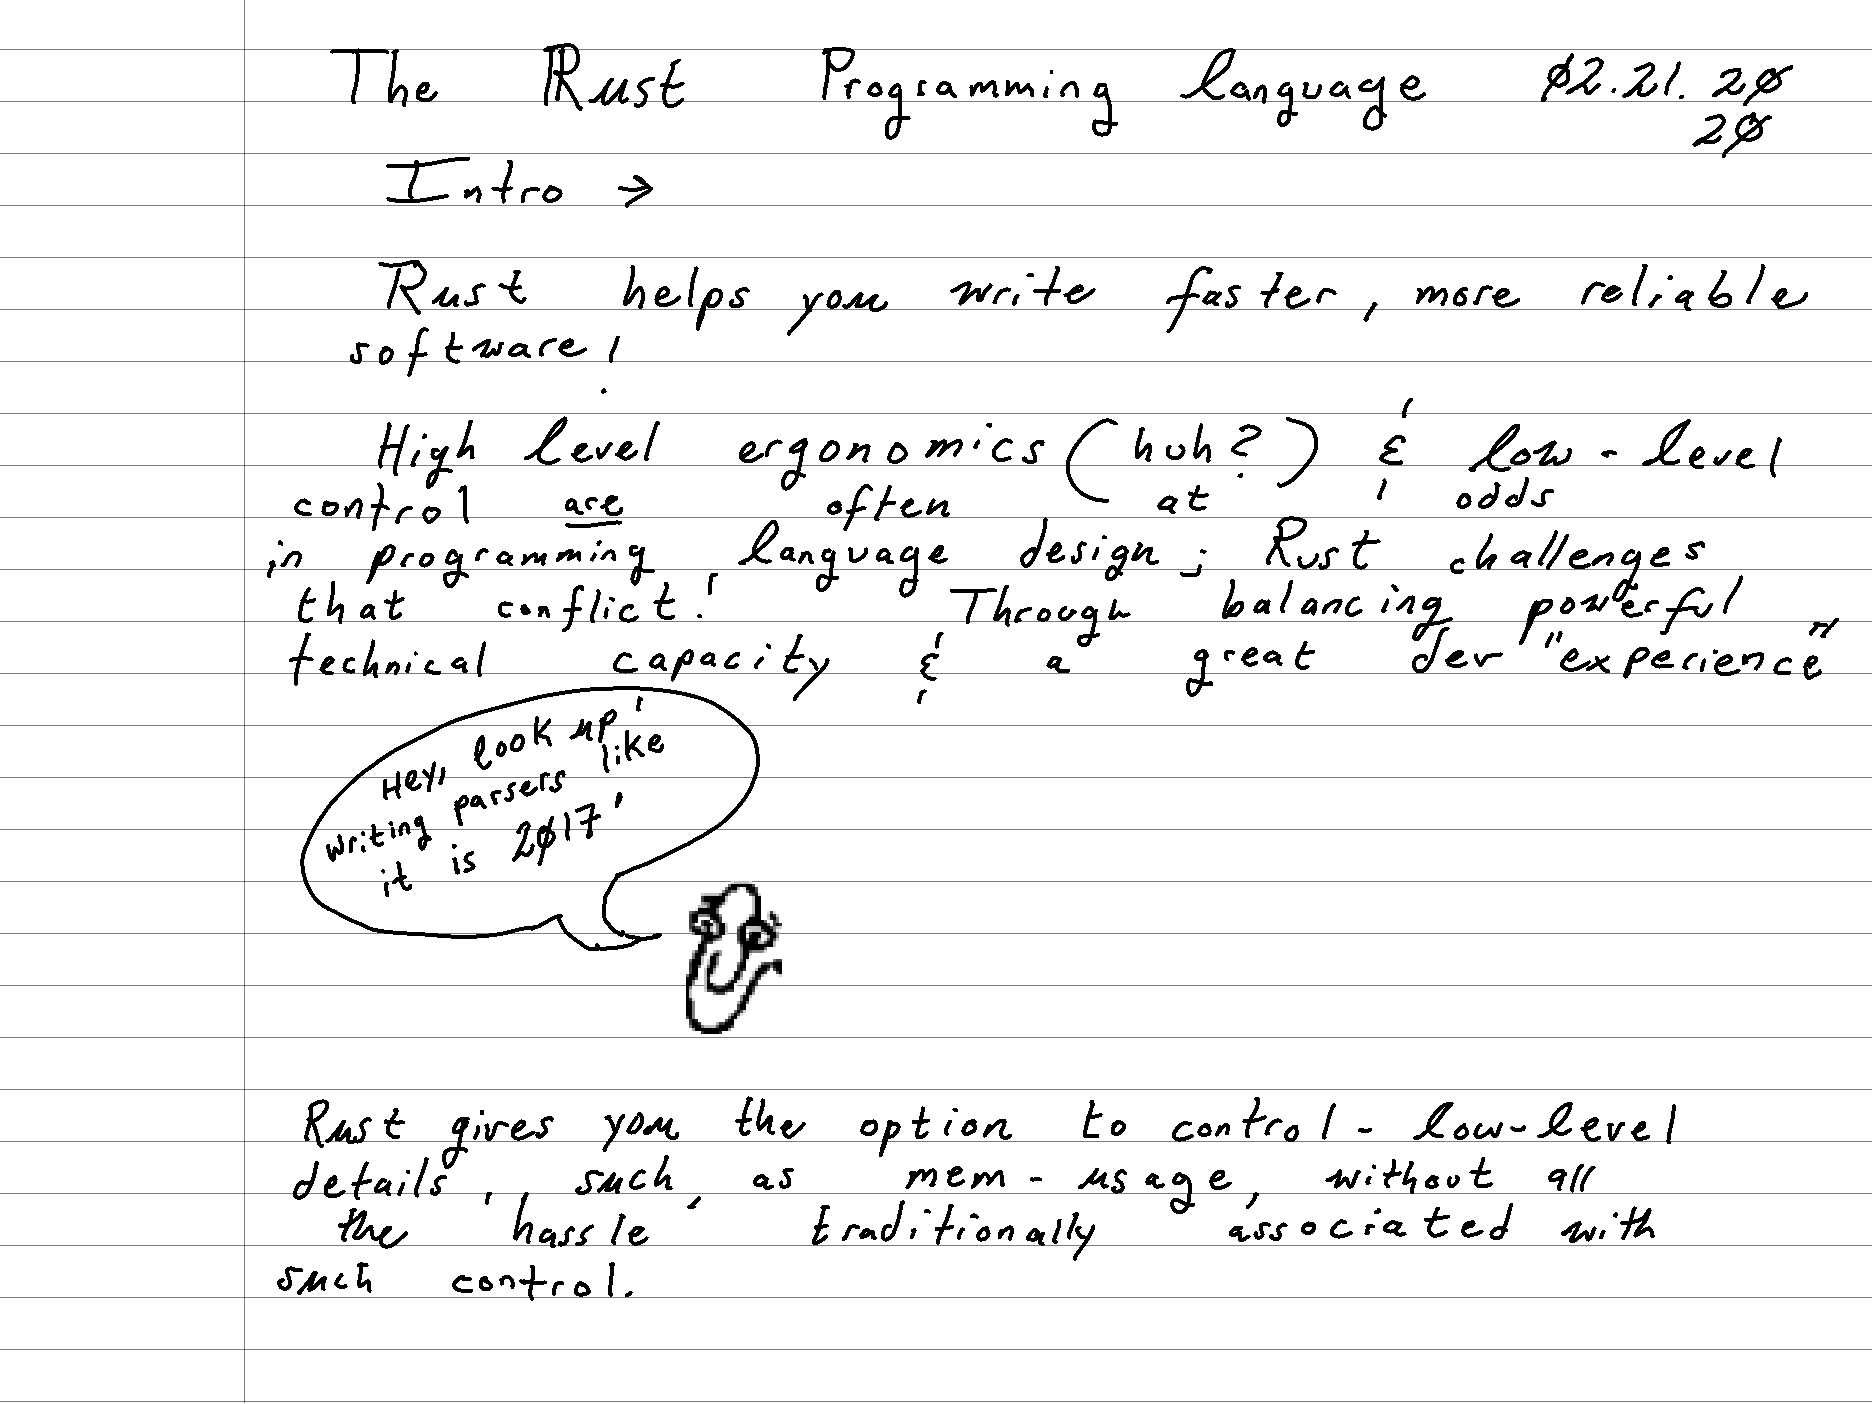 The Rust Programming language 02.21.20
20
Intro →
Rust helps you write faster, more reliable
software!
High level ergonomics (huh?) & low-level
control are often at odds
in programming language design; Rust challenges
that conflict! Through balancing powerful
technical capacity & a great dev "experience"
Hey, look up!
writing parsers like
it is 2017'
Rust gives you the option to control - low-level
details, such, as mem-usage, without all
the hassle traditionally associated with
such control.